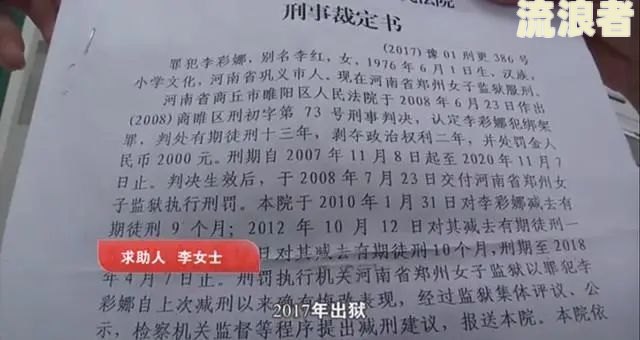 流浪者
民法院
刑事裁定书
(2017)豫01刑更386号
罪犯李彩娜，别名李红，女，1976年6月1日生，汉族，
小学文化，河南省巩义市人。现在河南省郑州女子监狱服刑。
河南省商丘市睢阳区人民法院于2008年6月23日作出
(2008)商睢区刑初字第73号刑事判决，认定李彩娜犯绑架
罪，判处有期徒刑十三年，剥夺政治权利二年，并处罚金人
民币2000元。刑期自2007年11月8日起至2020年11月7
日止。判决生效后，于2008年7月23日交付河南省郑州女
子监狱执行刑罚。本院于2010年1月31日对李彩娜减去有
期徒刑9个月；2012年10月12日对其减去有期徒刑一
日对其减去有期徒刑10个月，刑期至2018
年4月7日止。刑罚执行机关河南省郑州女子监狱以罪犯李
彩娜自上次减刑以来确有悔改表现，经过监狱集体评议、公
示，检察机关监督等程序提出减刑建议，报送本院。本院依
求助人 李女士
2017年出狱